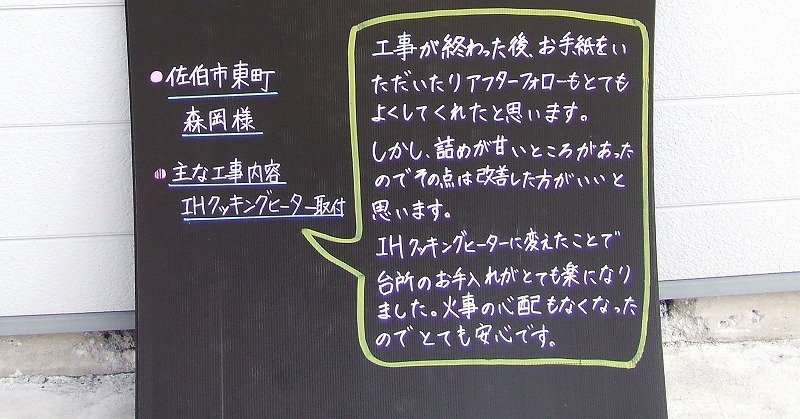 ●佐伯市東町
森岡様
●主な工事内容
IHクッキングヒーター取付
工事が終わった後、お手紙をい
ただいたりアフターフォローもとても
よくしてくれたと思います。
しかし、詰めが甘いところがあった
のでその点は改善した方がいいと
思います。
IHクッキングヒーターに変えたことで
台所のお手入れがとても楽になり
ました。火事の心配もなくなった
のでとても安心です。